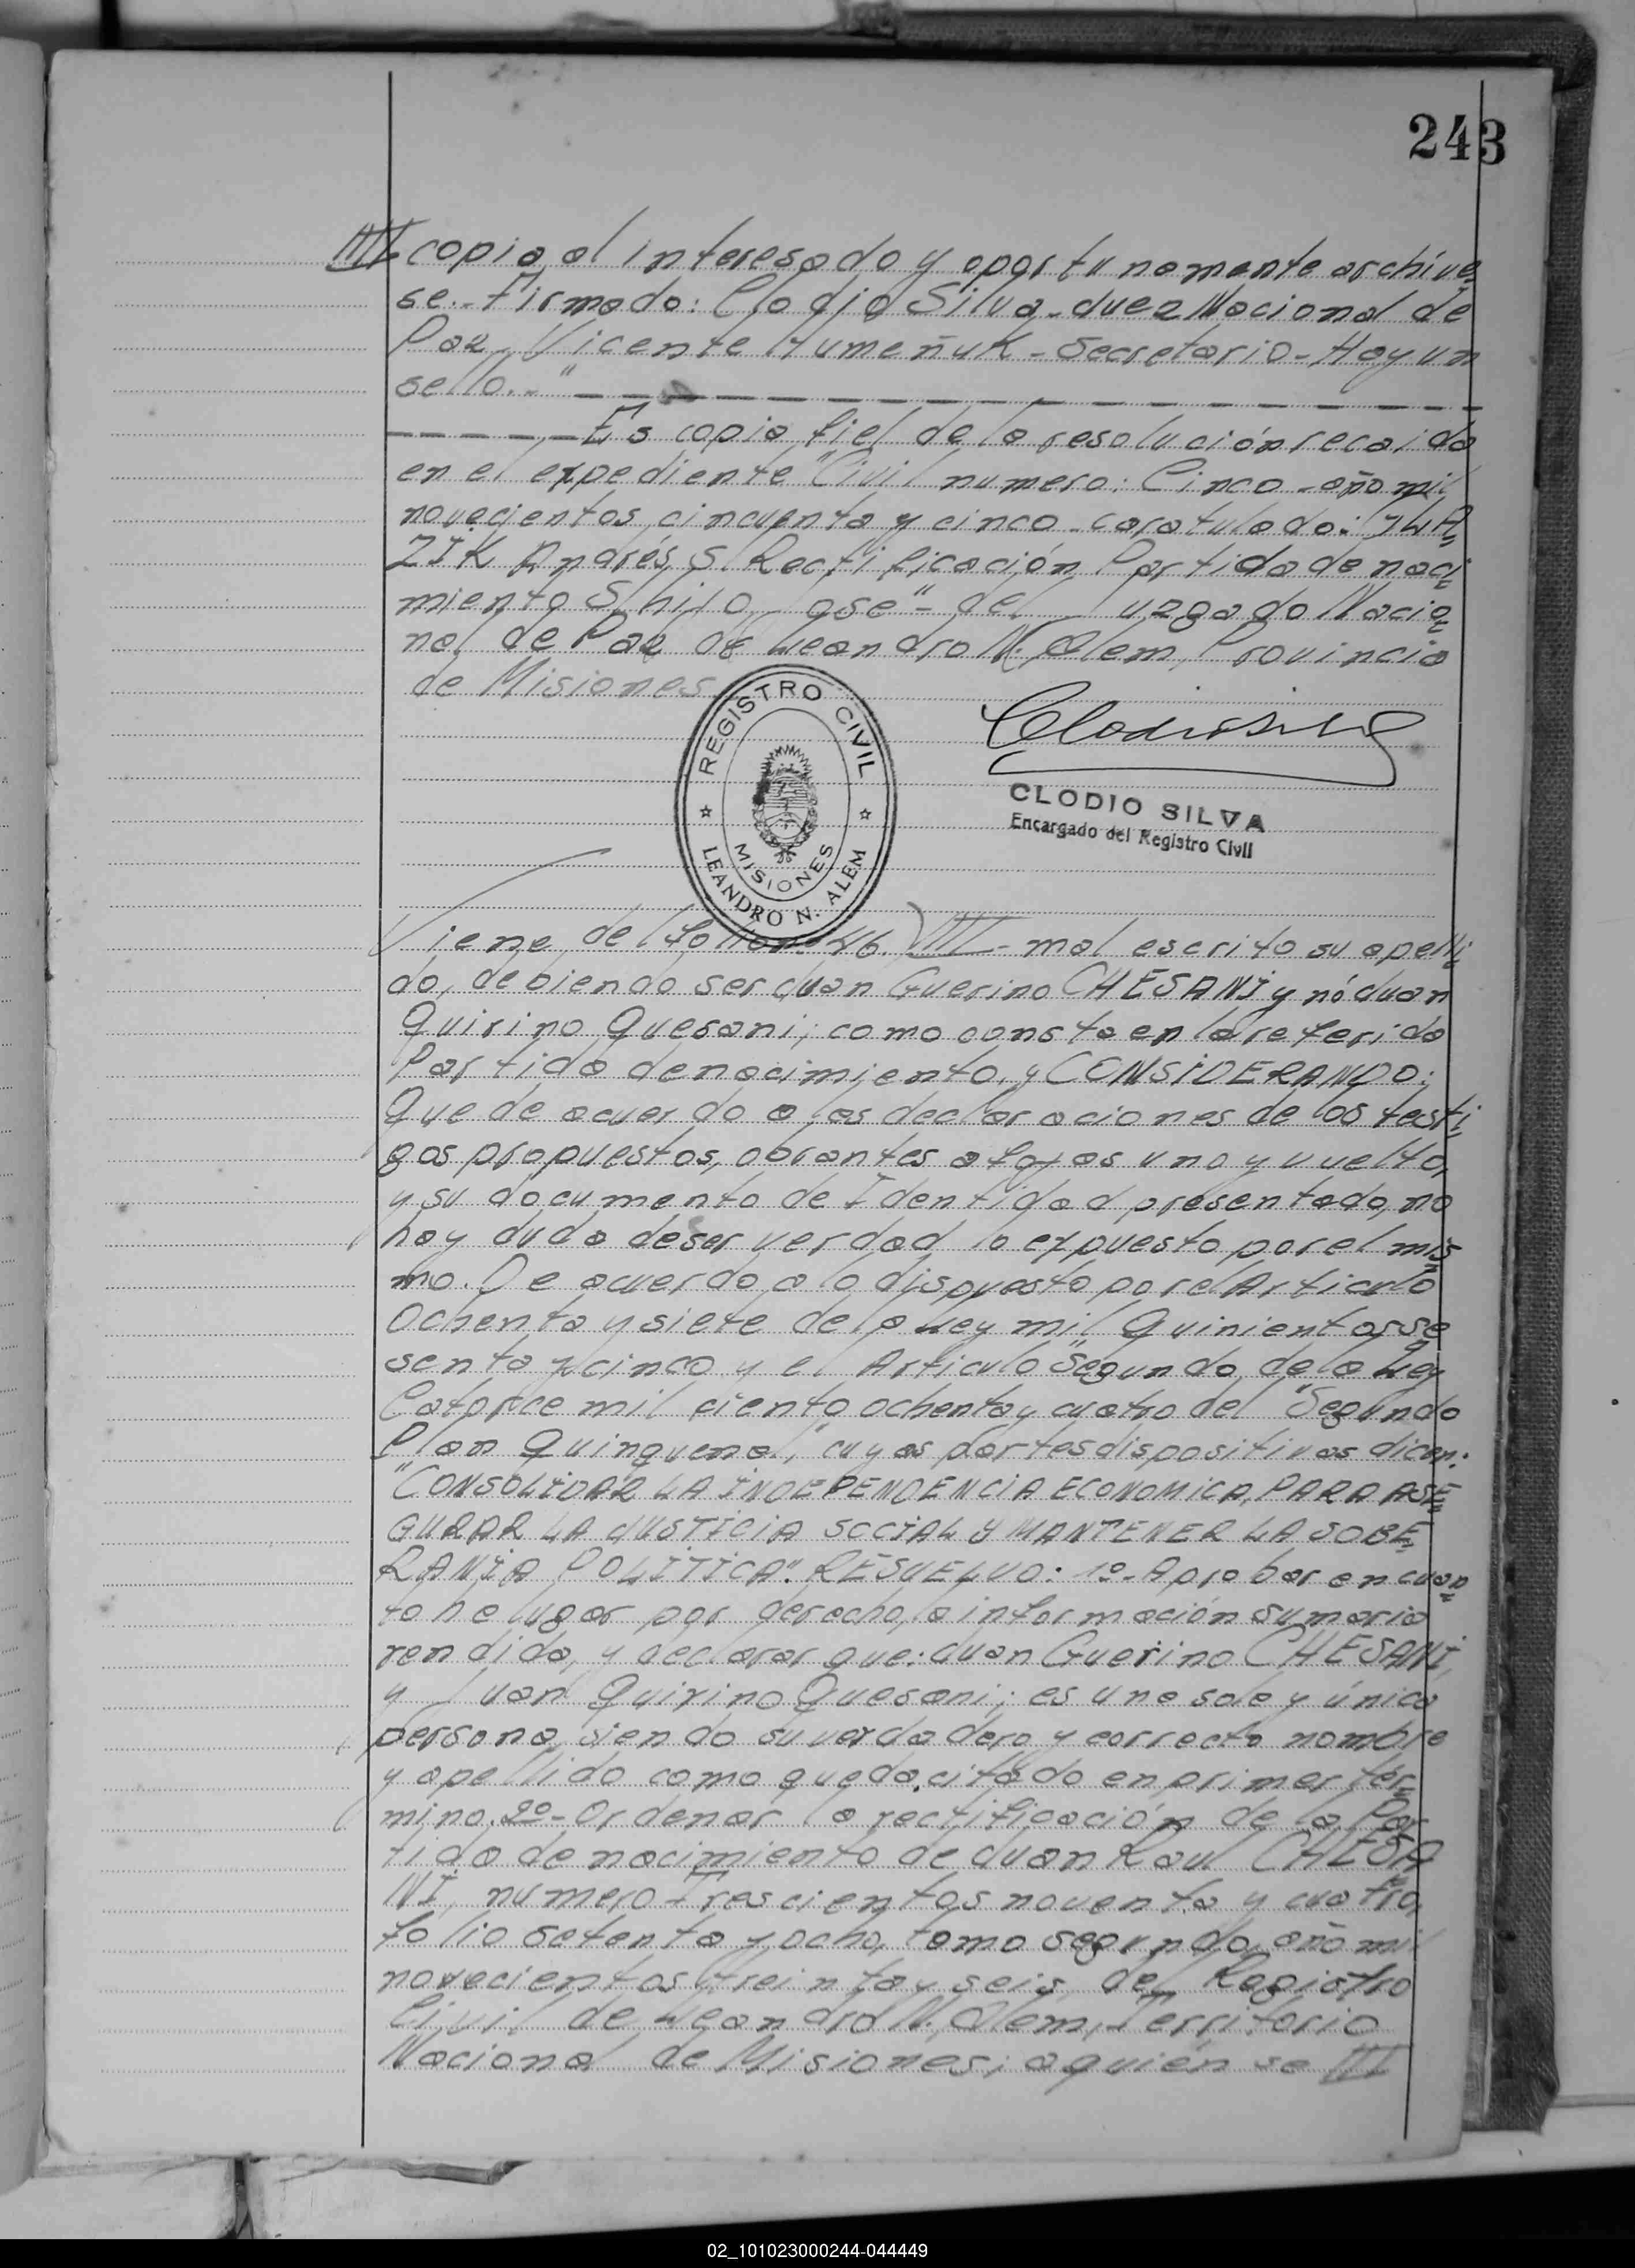 243
IIII copia al interesado y oportunamente archive
se.- Firmado: Clodio Silva - Juez Nacional de
Paz, Vicente Humeñuk - Secretario - Hay un
sello.-"
Es copia fiel de la resolución recaida
en el expediente "Civil numero: Cinco - año mil
novecientos cincuenta y cinco - caratulado:
ZIK Andrés S/ Rectificación Partida de naci
miento S/ hijo José" - del Juzgado Nacio
nal de Paz de Leandro N. Alem, Provincia
de Misiones
REGISTRO CIVIL
MISIONES
LEANDRO N. ALEM
Clodio Silva
CLODIO SILVA
Encargado del Registro Civil
Viene del folio 46. IIII - mal escrito su apelli
do, debiendo ser Juan Guerino CHESANI y nó Juan
Quirino Quesani; como consta en la referida
Partida de nacimiento, y CONSIDERANDO:
Que de acuerdo a las declaraciones de los testi
gos propuestos, obrantes a fojas uno y vuelto,
y su documento de Identidad presentado, no
hay duda de ser verdad lo expuesto por el mis
mo. De acuerdo a lo dispuesto por el Articulo
Ochenta y siete de la Ley mil Quinientos se
senta y cinco y el Articulo Segundo de la Ley
Catorce mil ciento ochenta y cuatro del "Segundo
Plan Quinquenal," cuyas partes dispositivas dicen:
"CONSOLIDAR LA INDEPENDENCIA ECONOMICA, PARA ASE
GURAR LA JUSTICIA SOCIAL Y MANTENER LA SOBE
RANIA POLITICA". RESUELVO: 1º- Aprobar en cuan
to ha lugar por derecho, la información sumaria
rendida, y declarar que: Juan Guerino CHESANI,
y Juan Quirino Quesani; es una sola y única
persona, siendo su verdadero y correcto nombre
y apellido como queda citado en primer tér
mino. 2º- Ordenar la rectificación de la Par
tida de nacimiento de Juan Raul CHESA
NI, numero Trescientos noventa y cuatro,
folio setenta y ocho, tomo segundo, año mil
novecientos treinta y seis, del Registro
Civil de Leandro N. Alem, Territorio
Nacional de Misiones; a quién se III
02_101023000244-044449